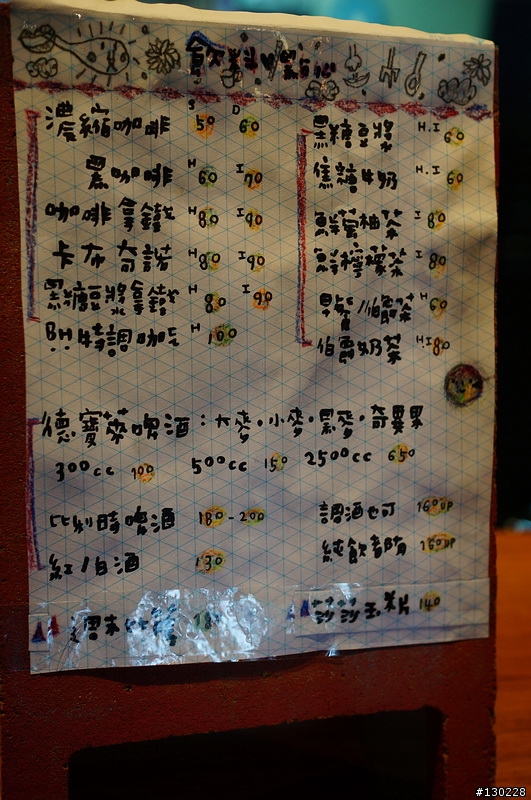 飲料 點心
S D
濃縮咖啡 50 60
黑咖啡 H 60 I 70
咖啡拿鐵 H 80 I 90
卡布奇諾 H 80 I 90
黑糖豆漿拿鐵 H 80 I 90
BH特調咖啡 H 100
黑糖豆漿 H.I 60
焦糖牛奶 H.I 60
鮮蜜柚茶 I 80
鮮檸檬茶 I 80
/伯爵茶 H 60
伯爵奶茶 H.I 80
德寶萊啤酒：大麥．小麥．黑麥．奇異果
300cc 100 500cc 150 2500cc 650
比利時啤酒 180-200
紅/白酒 130
調酒也可 160up
純飲 160up
週末
莎莎玉米片 140
#130228